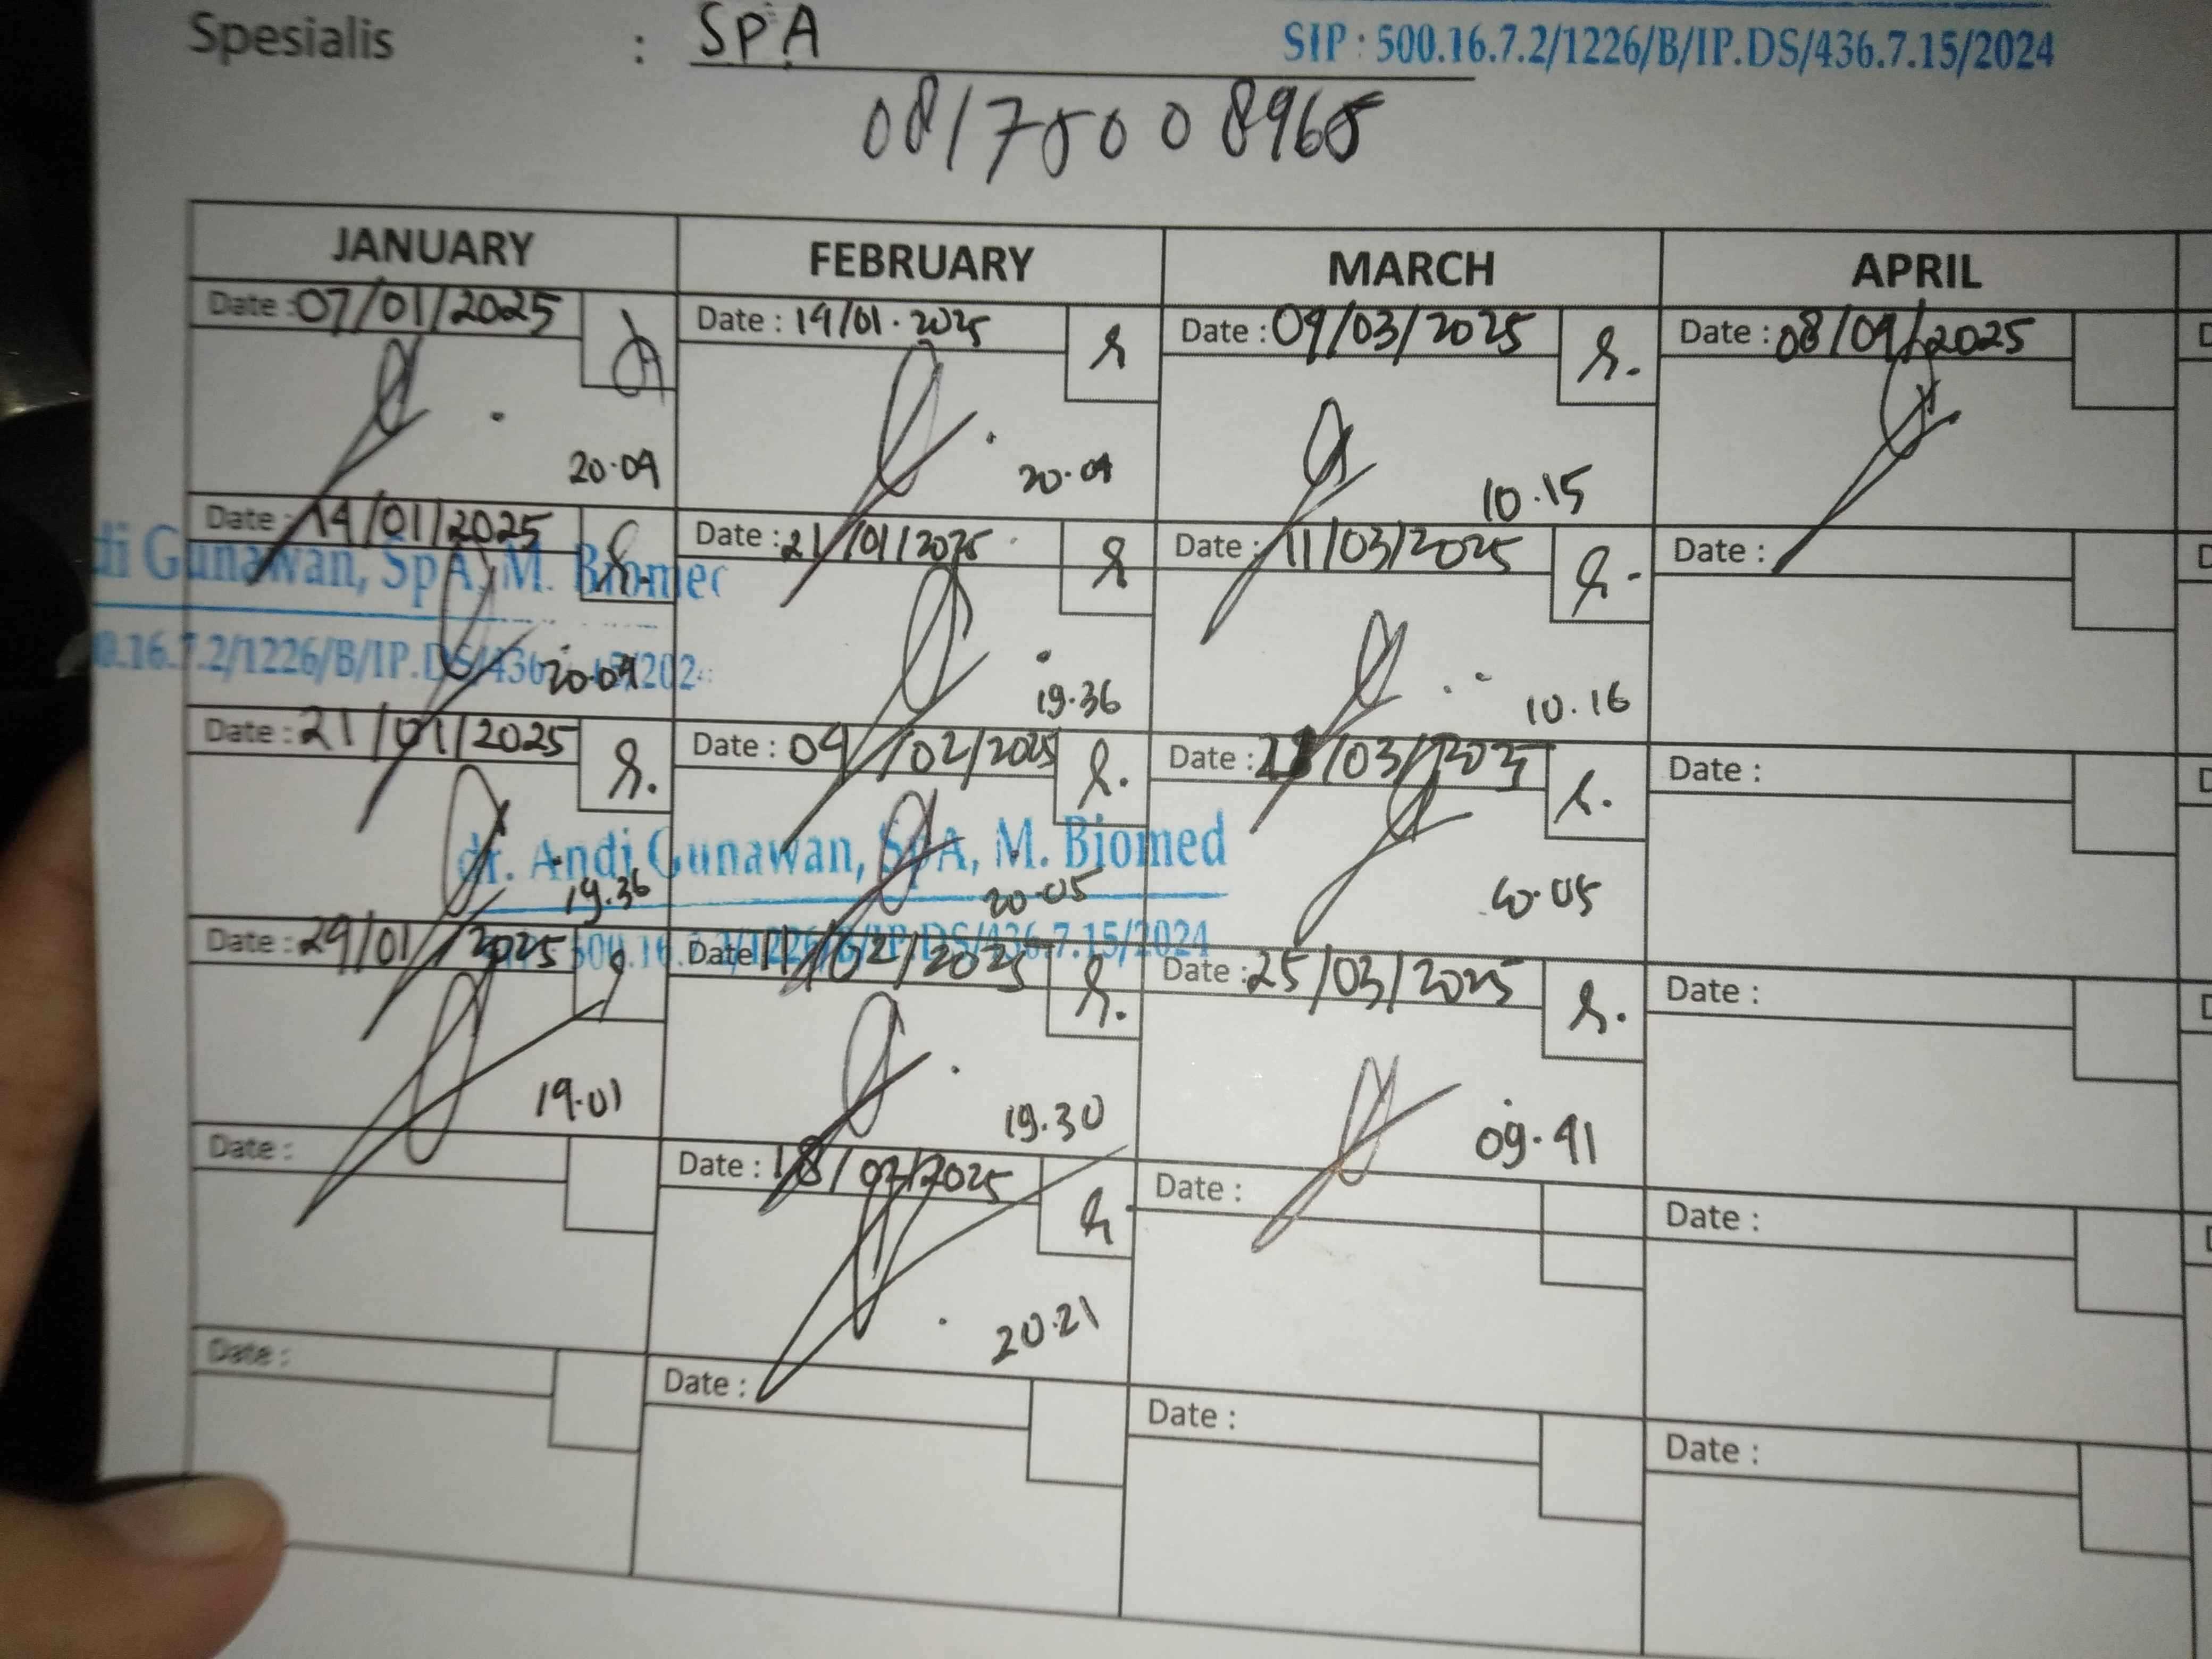 Spesialis : SPA
SIP : 500.16.7.2/1226/B/IP.DS/436.7.15/2024
08175008968
JANUARY FEBRUARY MARCH APRIL
Date : 07/01/2025 Date : 14/01.2025 Date : 04/03/2025 Date : 08/04/2025
20.04 20.04 10.15
Date : 14/01/2025 Date : 21/01/2025 Date : 11/03/2025 Date :
di Gunawan, SpA, M. Biomed
0.16.7.2/1226/B/IP.DS/436
20.04 19.36 10.16
Date : 21/01/2025 Date : 04/02/2025 Date : /03/2025 Date :
dr. Andi Gunawan, SpA, M. Biomed
19.36 20.05
Date : 29/01/2025 Date 11/02/2025 Date : 25/03/2025 Date :
7.15/2024
19.01 19.30 09.41
Date : Date : 18/02/2025 Date : Date :
20.21
Date : Date : Date : Date :